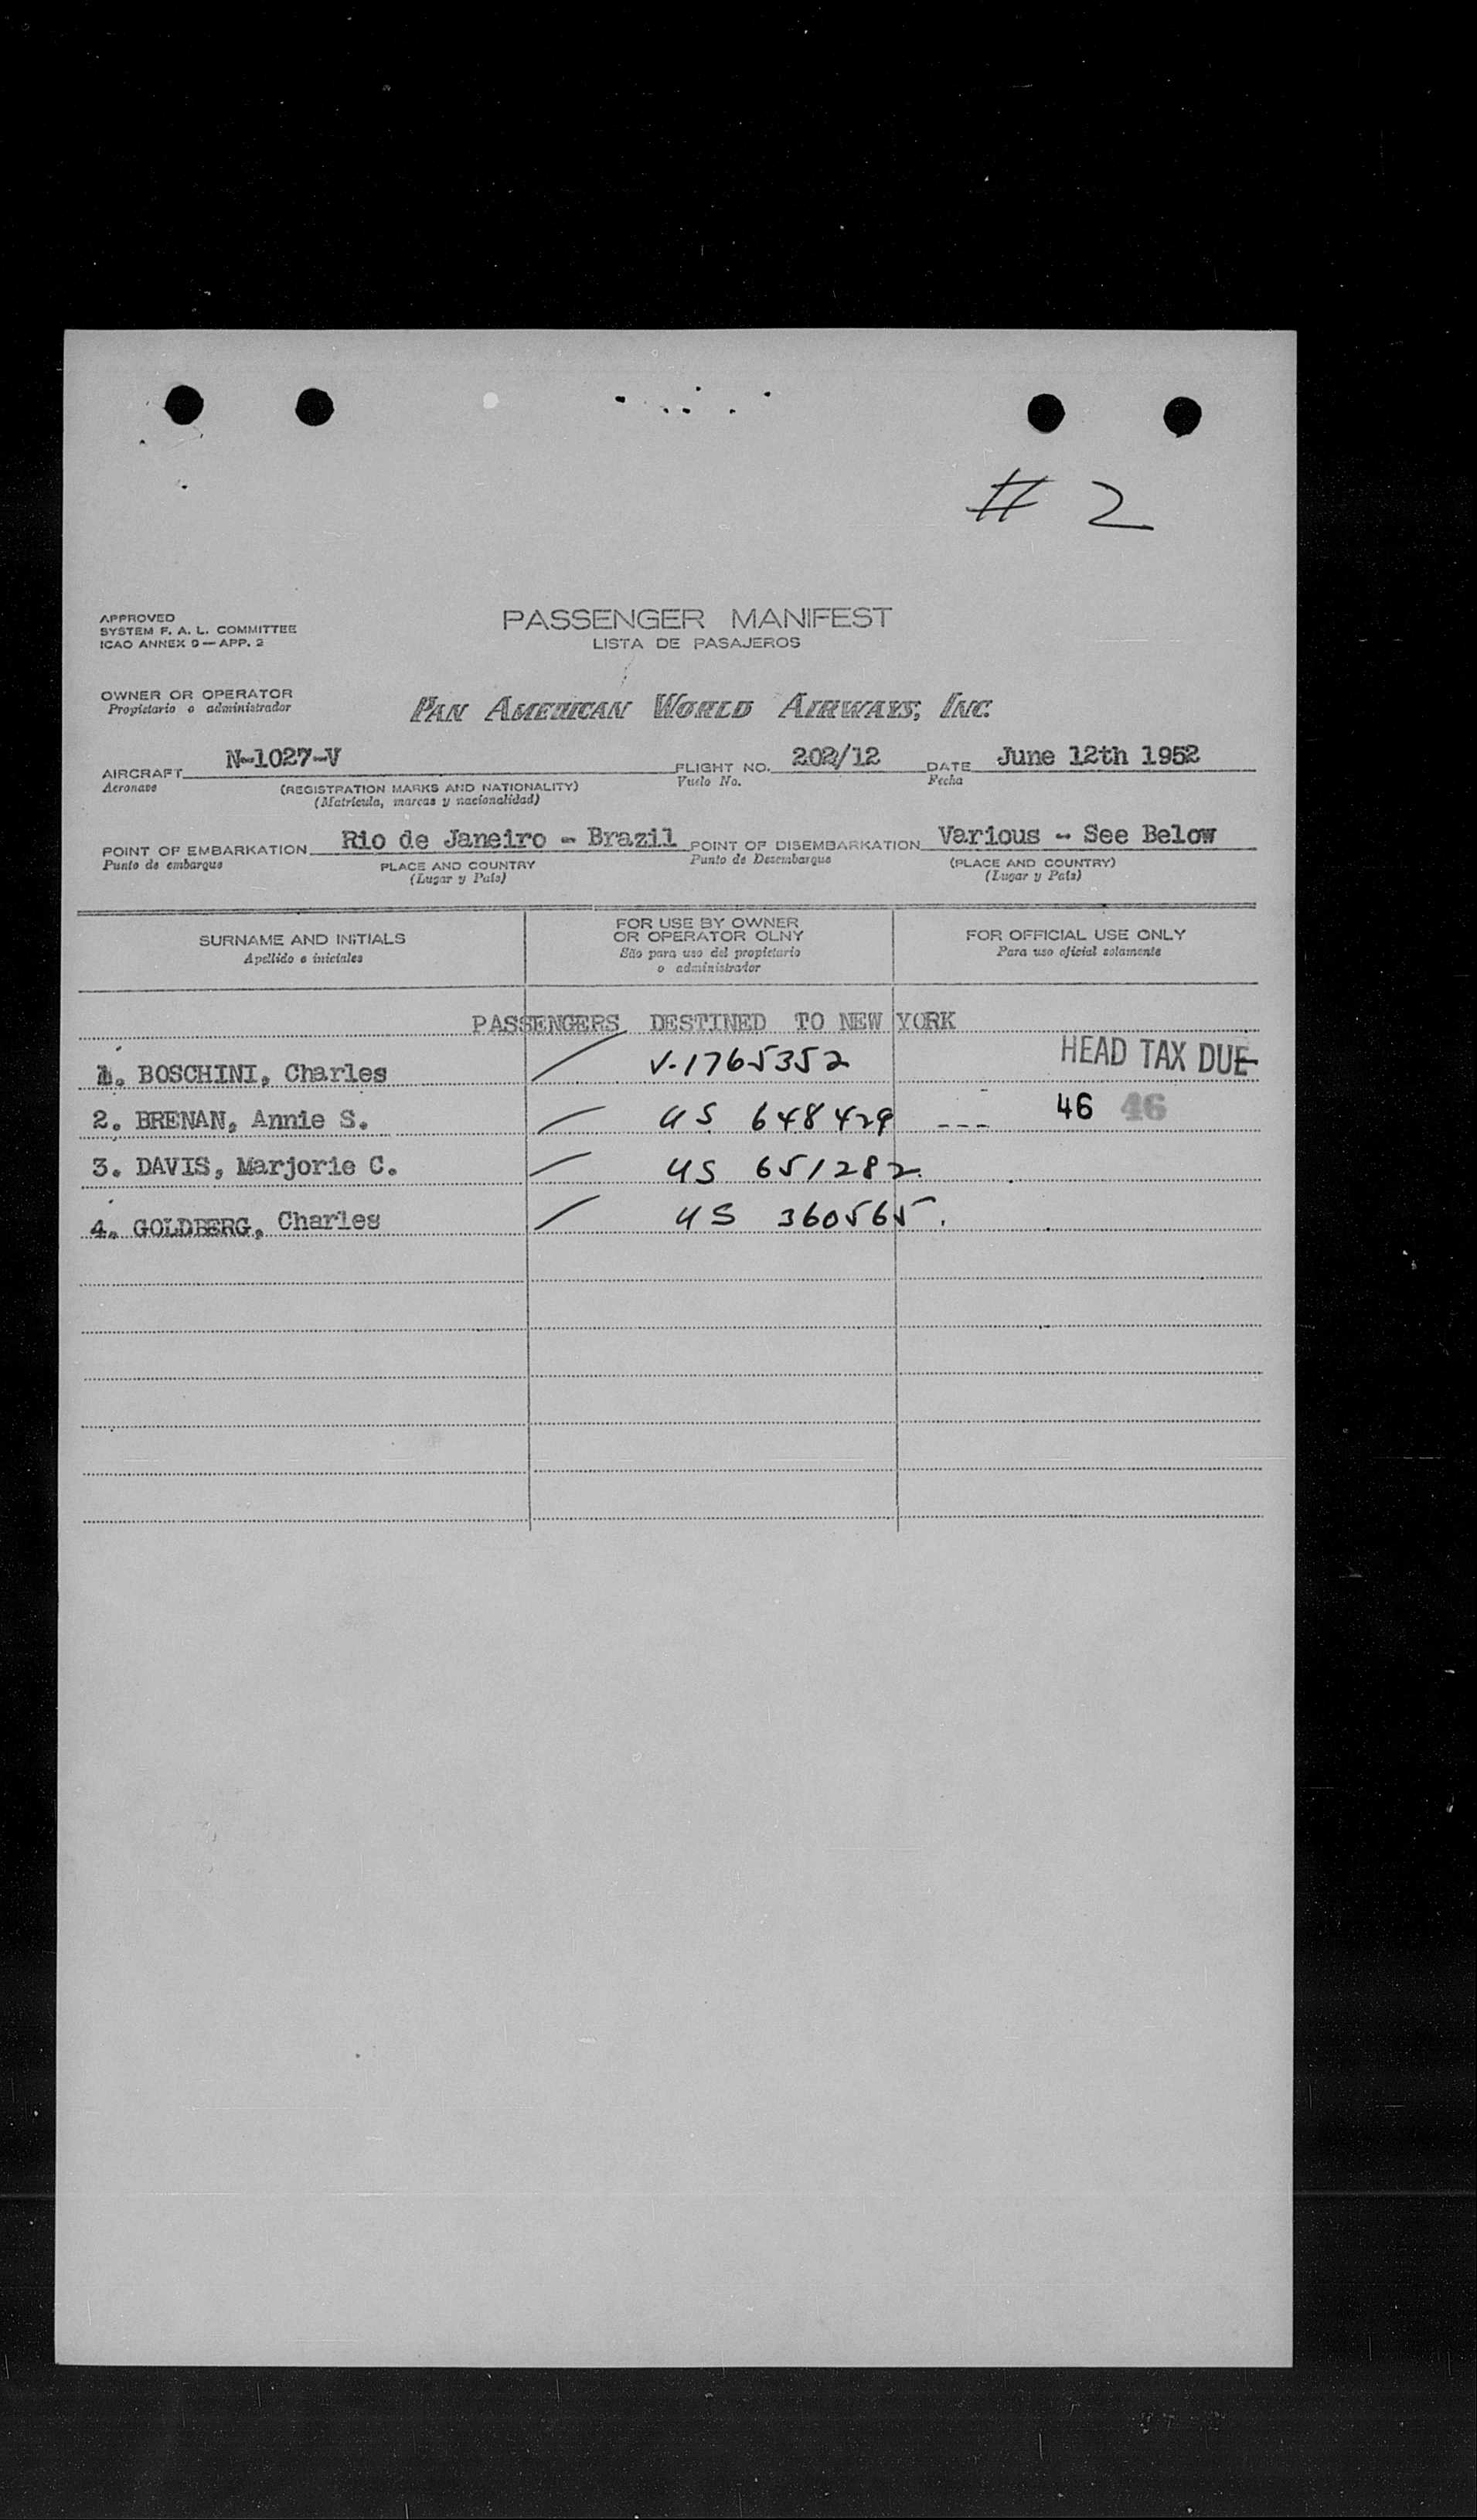 # 2
APPROVED
SYSTEM F. A. L. COMMITTEE
ICAO ANNEX 9 — APP. 2
PASSENGER MANIFEST
LISTA DE PASAJEROS
OWNER OR OPERATOR
Propietario o administrador
PAN AMERICAN WORLD AIRWAYS, INC.
AIRCRAFT N-1027-V FLIGHT NO. 202/12 DATE June 12th 1952
Aeronave (REGISTRATION MARKS AND NATIONALITY) Vuelo No. Fecha
(Matricula, marcas y nacionalidad)
POINT OF EMBARKATION Rio de Janeiro - Brazil POINT OF DISEMBARKATION Various - See Below
Punto de embarque PLACE AND COUNTRY Punto de Desembarque (PLACE AND COUNTRY)
(Lugar y País) (Lugar y País)
SURNAME AND INITIALS
Apellido e iniciales
FOR USE BY OWNER
OR OPERATOR OLNY
São para uso del propietario
o administrador
FOR OFFICIAL USE ONLY
Para uso oficial solamente
PASSENGERS DESTINED TO NEW YORK
1. BOSCHINI, Charles V-1765352 HEAD TAX DUE
2. BRENAN, Annie S. US 648429 --- 46 46
3. DAVIS, Marjorie C. US 651282.
4. GOLDBERG, Charles US 360565.